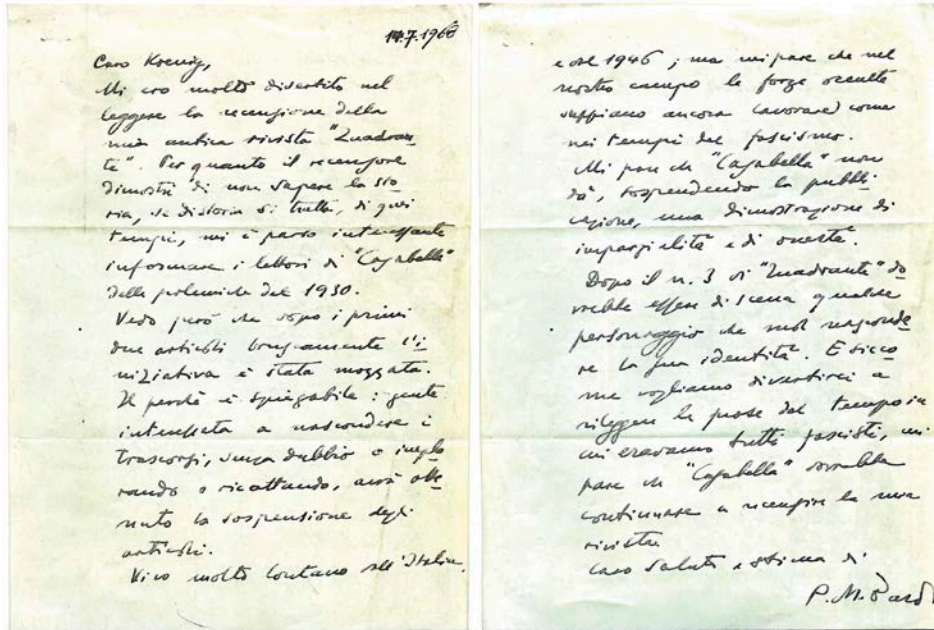 14.7.1966
Caro Koenig,
Mi ero molto divertito nel
leggere la recensione della
mia antica rivista "Quadran
te". Per quanto il recensore
dimostri di non sapere la sto
ria, se di storia si tratta, di quei
tempi, mi è parso interessante
informare i lettori di "Casabella"
delle polemiche del 1930.
Vedo però che dopo i primi
due articoli bruscamente l'i
niziativa è stata mozzata.
Il perché è spiegabile: gente
interessata a nascondere i
trascorsi, senza dubbio o implo
rando o ricattando, avrà otte
nuto la sospensione degli
articoli.
Vivo molto lontano dall'Italia,
e dal 1946; ma mi pare che nel
nostro campo le forze occulte
sappiano ancora lavorare come
nei tempi del fascismo.
Mi pare che "Casabella" non
dà, sospendendo la pubbli
cazione, una dimostrazione di
imparzialità e di onestà.
Dopo il n. 3 di "Quadrante" do
vrebbe essere di scena qualche
personaggio che vuol nasconde
re la sua identità. E sicco
me vogliamo divertirci a
rileggere le prose del tempo in
cui eravamo tutti fascisti, mi
pare che "Casabella" dovrebbe
continuare a recensire la mia
rivista.
Caro saluto e stima di
P. M. Bardi